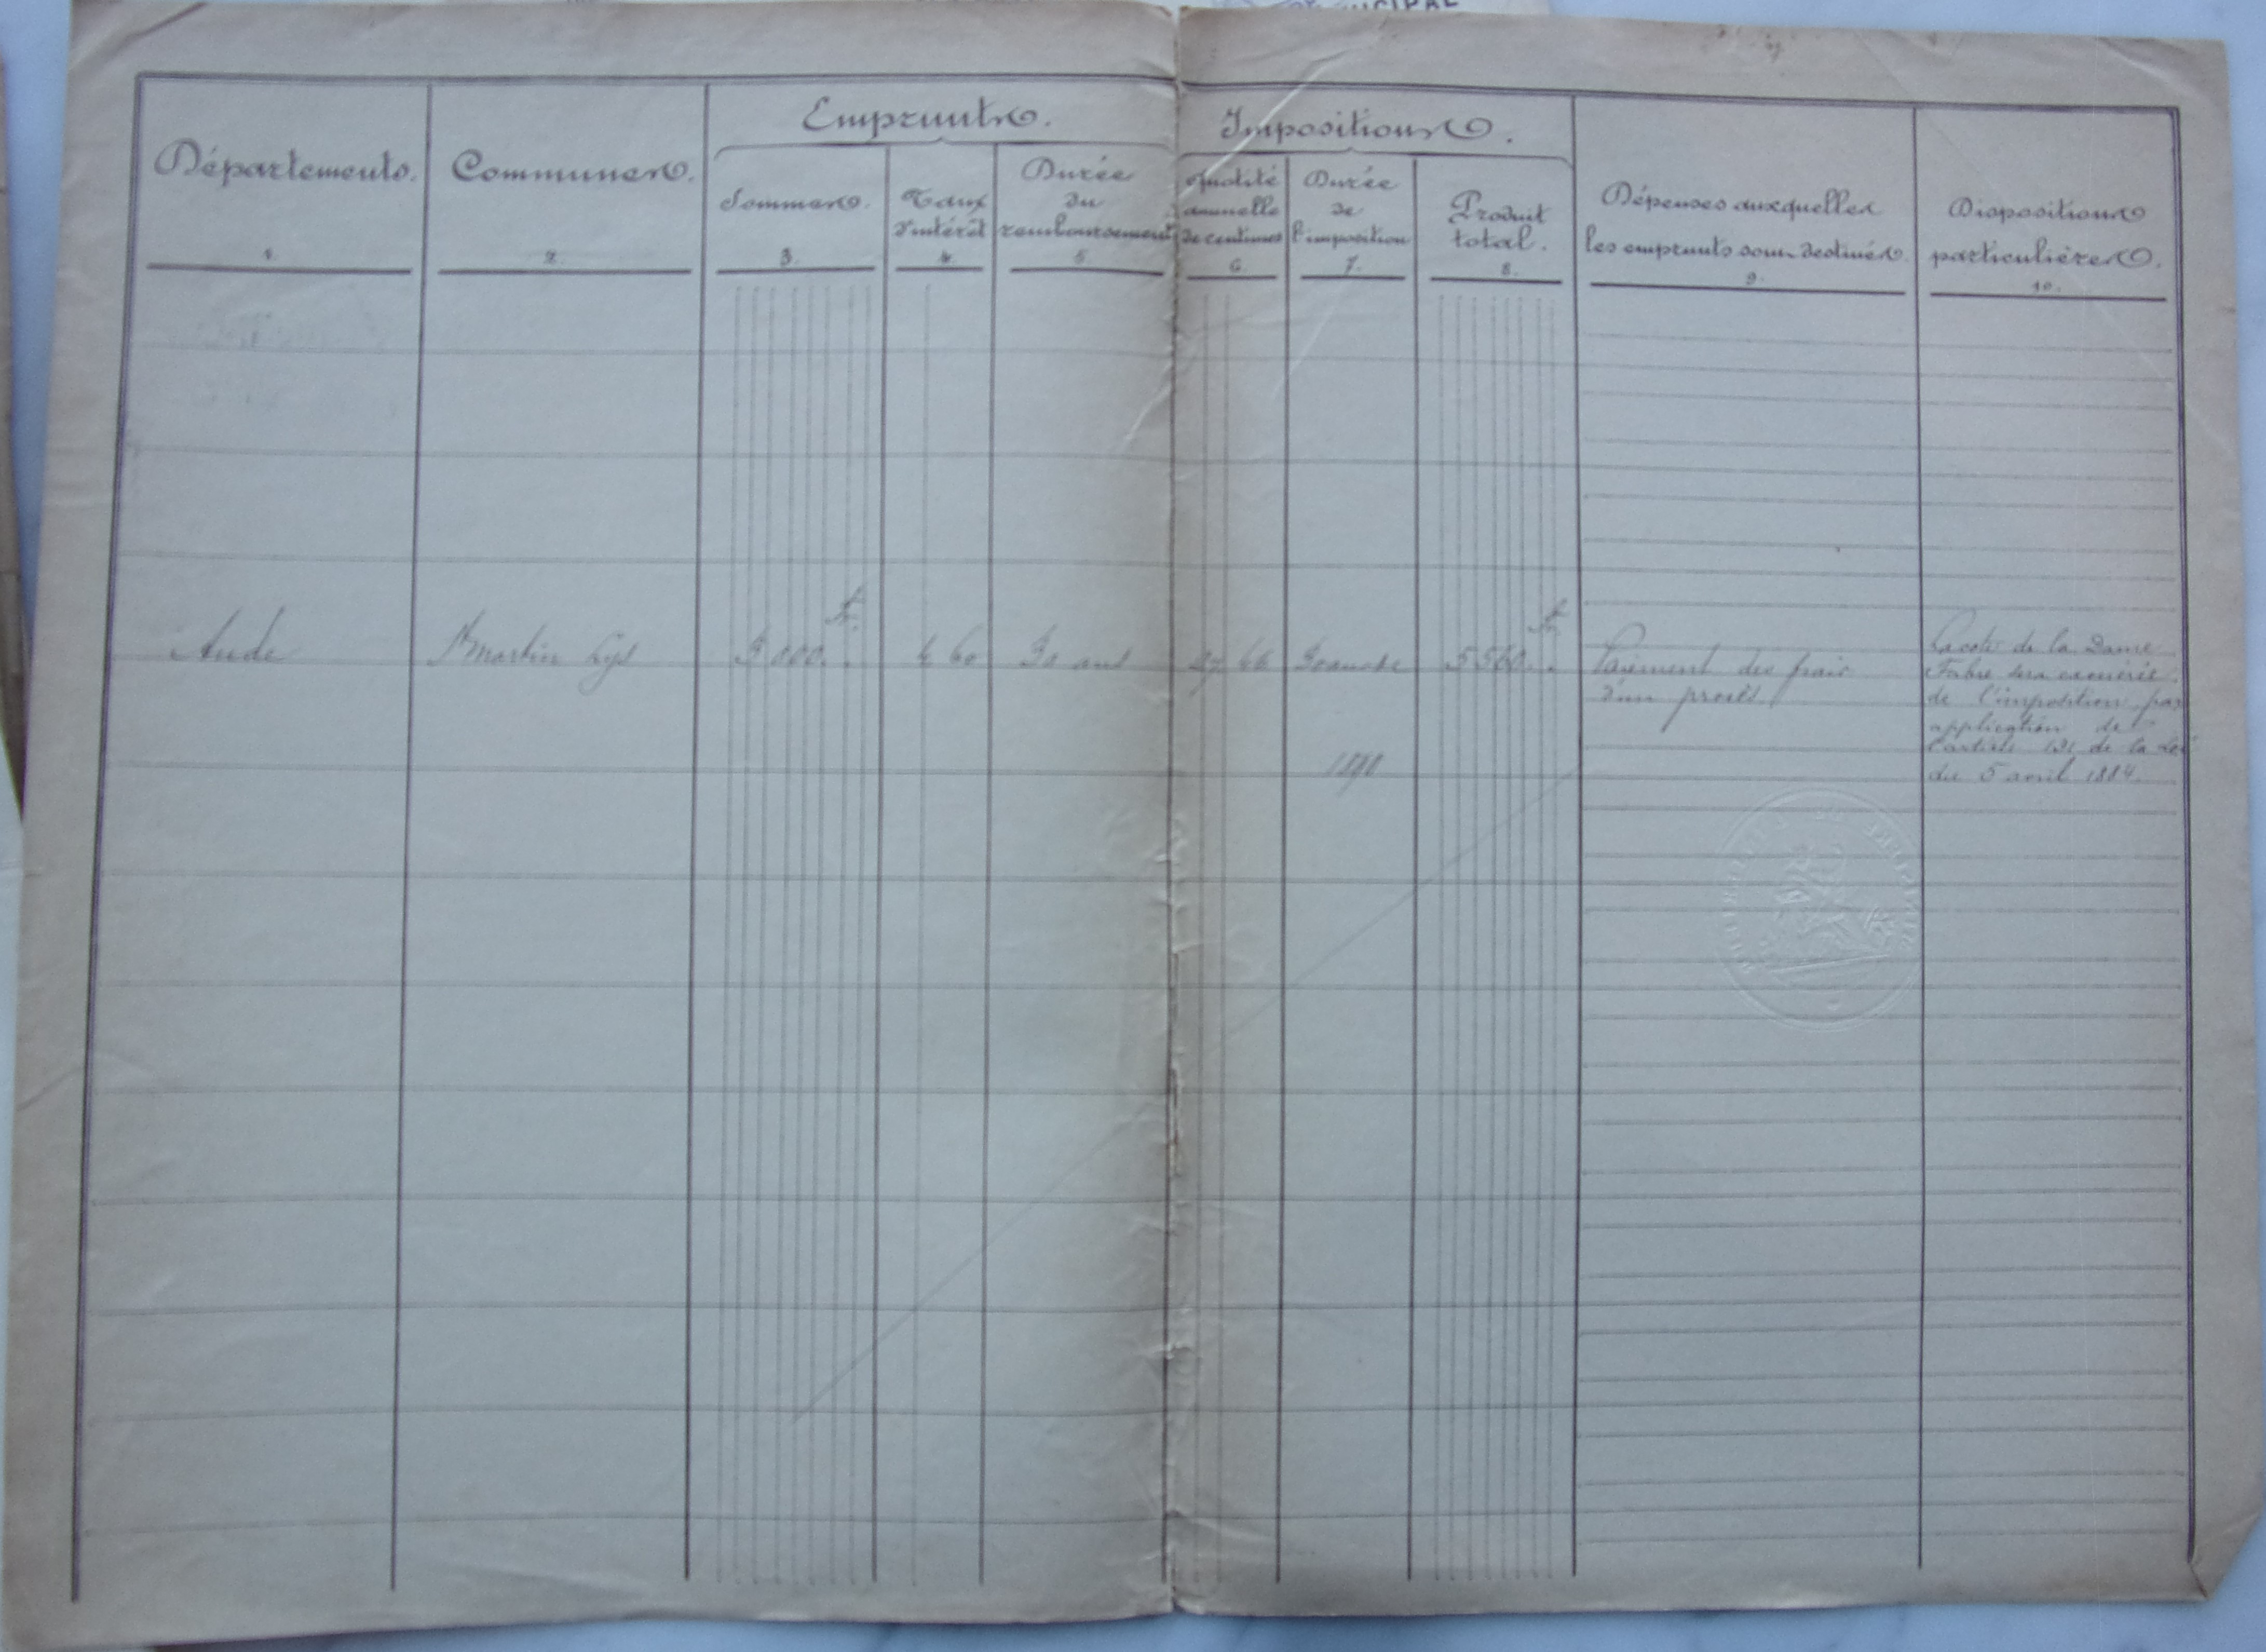 Départements.
1.
Communes.
2.
Emprunts.
Sommes.
3.
Taux
d'intérêt
4.
Durée
du
remboursement
5.
Impositions.
Quotité
annuelle
de centimes
6.
Durée
de
l'imposition
7.
Produit
total.
8.
Dépenses auxquelles
les emprunts sont destinés.
9.
Dispositions
particulières.
10.
Aude
St martin Lys
fr.
3 000. .
4 60
30 ans
27 66
30 ans de
1890
fr.
5560. .
Paiement des frais
d'un procès.
La cote de la Dame
Fabre sera exonérée
de l'imposition par
application de
l'article 131 de la Loi
du 5 avril 1884.